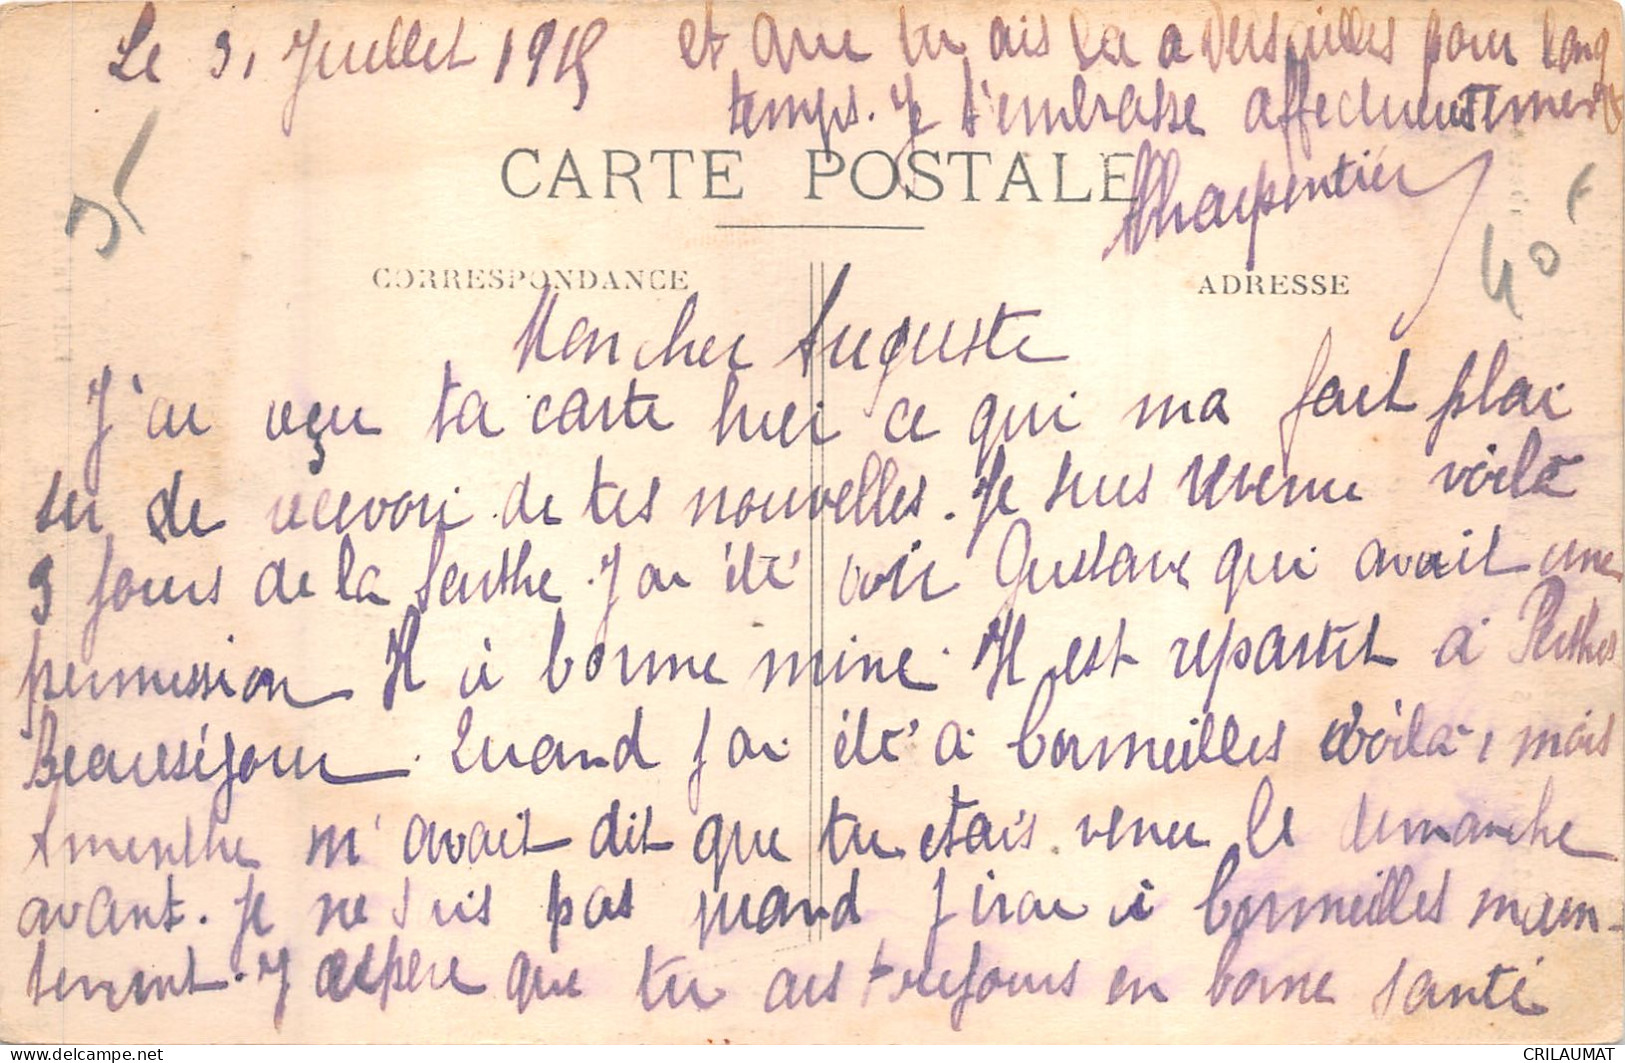 Le 31 Juillet 1915
et que tu ais la a Versailles pour long
temps. Je t'embrasse affectueusement
CARTE POSTALE
Charpentier
35
40 F
CORRESPONDANCE
ADRESSE
Mon cher Auguste
J'ai reçu ta carte hier ce qui ma fait plai
sir de recevoir de tes nouvelles. Je suis revenu voilà
9 jours de la Sarthe. J'ai été voir Gustave qui avait une
permission Il à bonne mine. Il est repartit à Perthes
Beauséjour. Quand j'ai été à Cormeilles voilà, mois
m'avait dit que tu etais venu le dimanche
avant. Je ne suis pas quand j'irai à Cormeilles main-
tenant. J'espère que tu ais toujours en bonne santé
CRILAUMAT